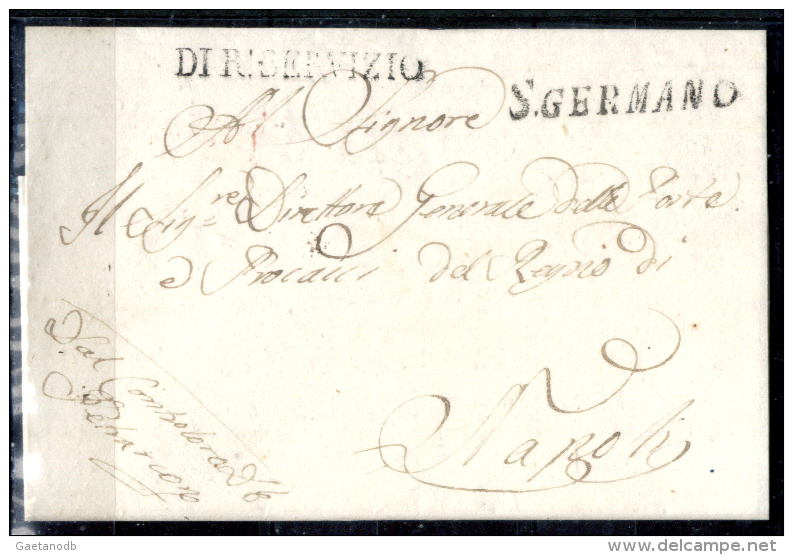 DI R. SERVIZIO
S. GERMANO
Al Signore
Il Sig.re Direttore Generale delle Poste
e Procacci del Regno di
Napoli
Dal
Gaetanodb
delcampe.net